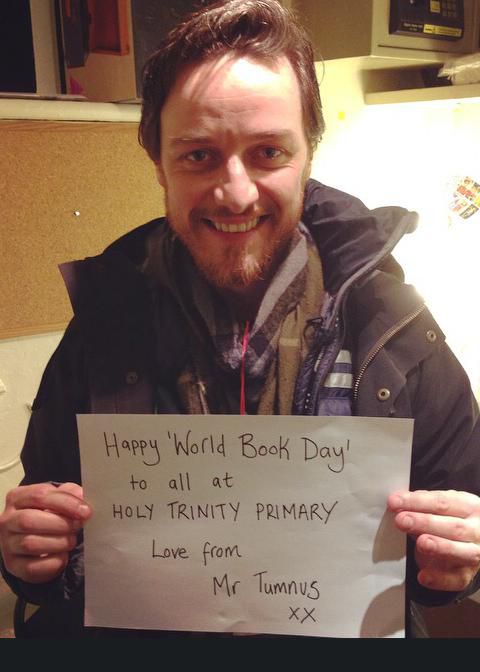 Happy 'World Book Day'
to all at
HOLY TRINITY PRIMARY
Love from
Mr Tumnus
xx